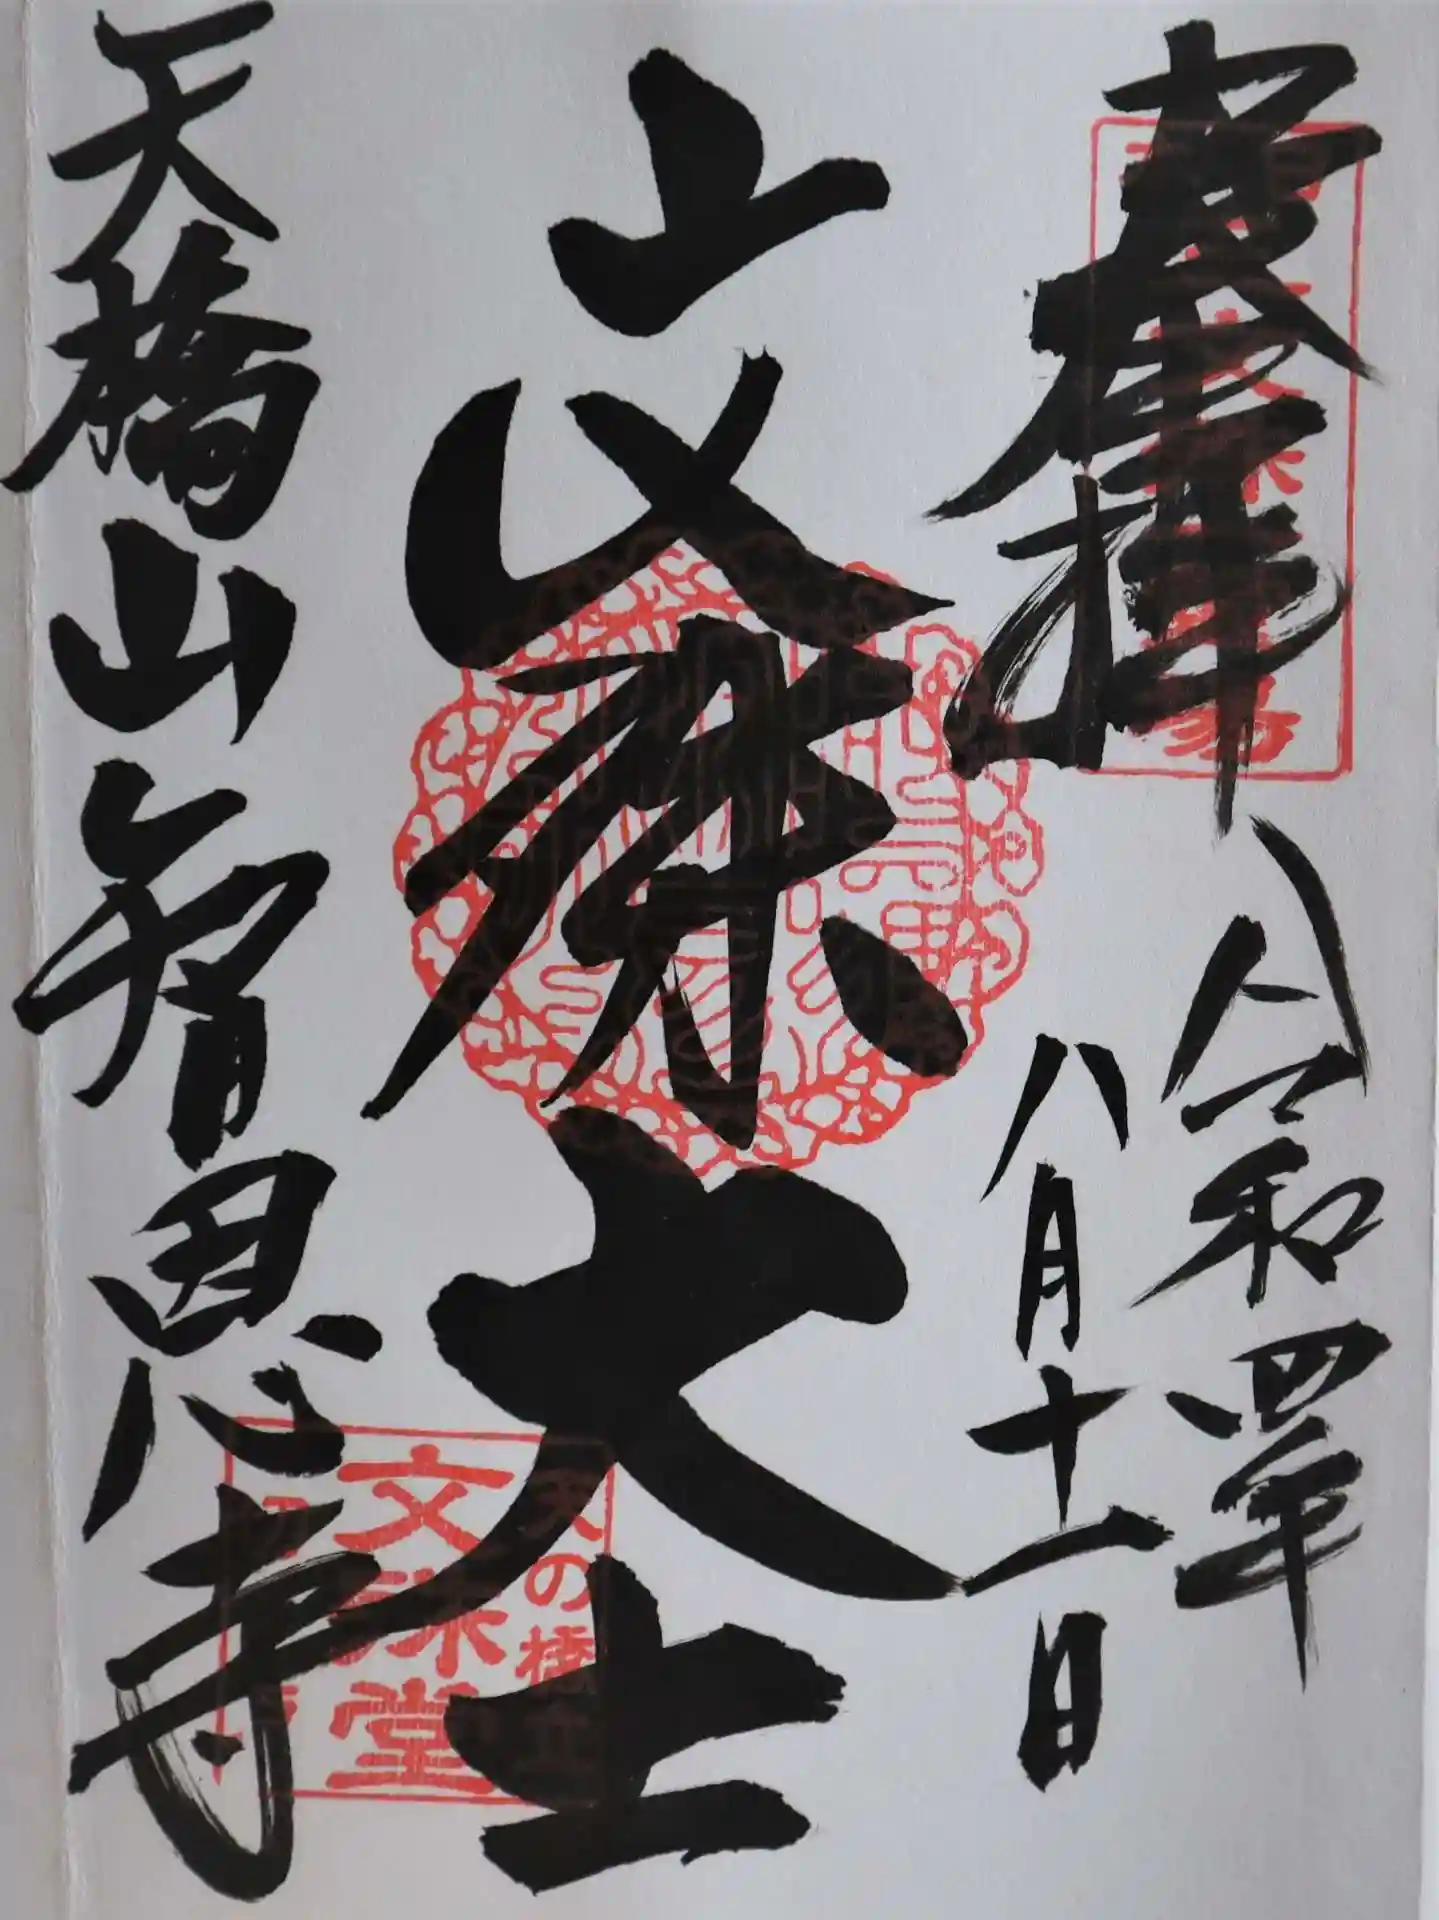 奉拝
令和四年
八月十一日
文殊大士
天橋山智恩寺
天の橋立
文殊堂